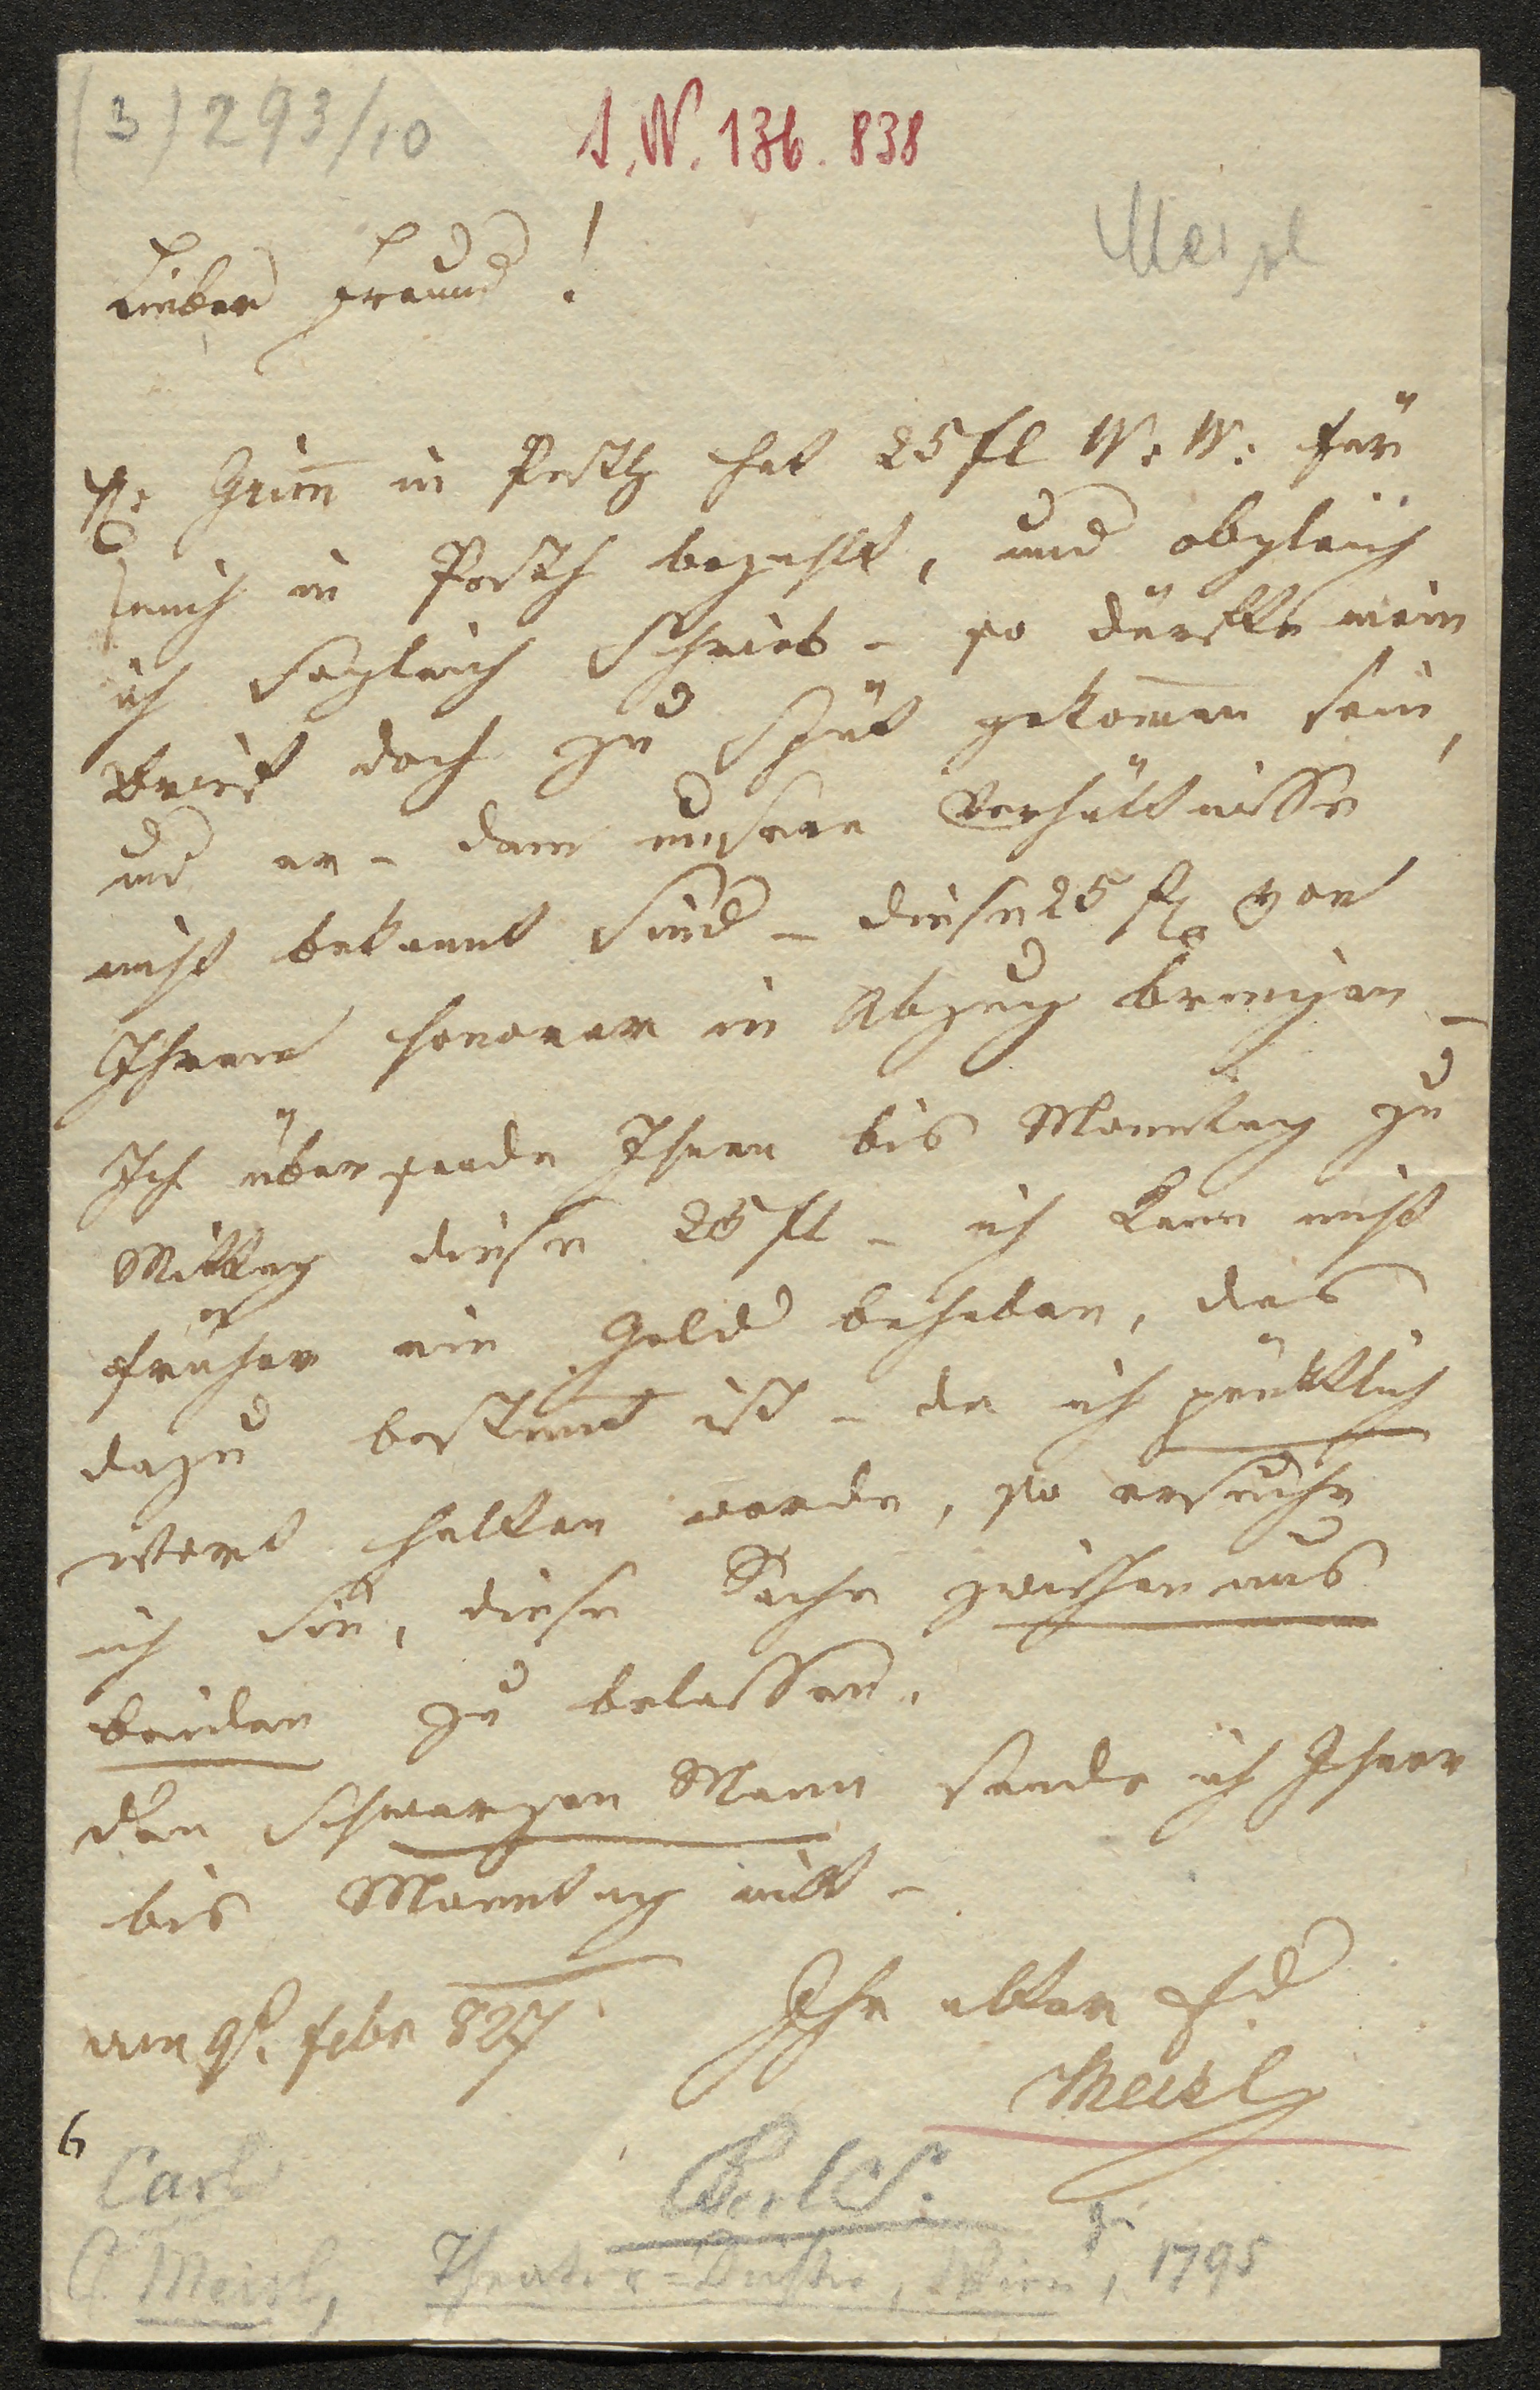 (3) 293/10
I.N. 136.838
Meisl
Lieber Freund!
Hr Grim̅ in Pesth hat 25 fl W. W. für
mich in Pesth bezahlt, und obgleich
ich sogleich schrieb – so dürfte mein
Brief doch zu spät gekom̅en sein,
und er – dem unsere Verhältnisse
nicht bekannt sind – diese 25 fl von
Ihrem Honorar in Abzug bringen –
Ich übersende Ihnen bis Monntag zu
Mittag diese 25 fl – ich kann nicht
früher ein Geld beheben, das
dazu bestim̅t ist – da ich pünktlich
Wort halten werde, so ersuche
ich Sie, diese Sache zwischen uns
beiden zu belassen.
Den schwarzen Mann sende ich Ihnen
bis Monntag mit –
am 9t. Febr 827
Ihr alter Fd
Meisl
6
Carl
C. Meisl, Theater-Dichter, Wien, 1795